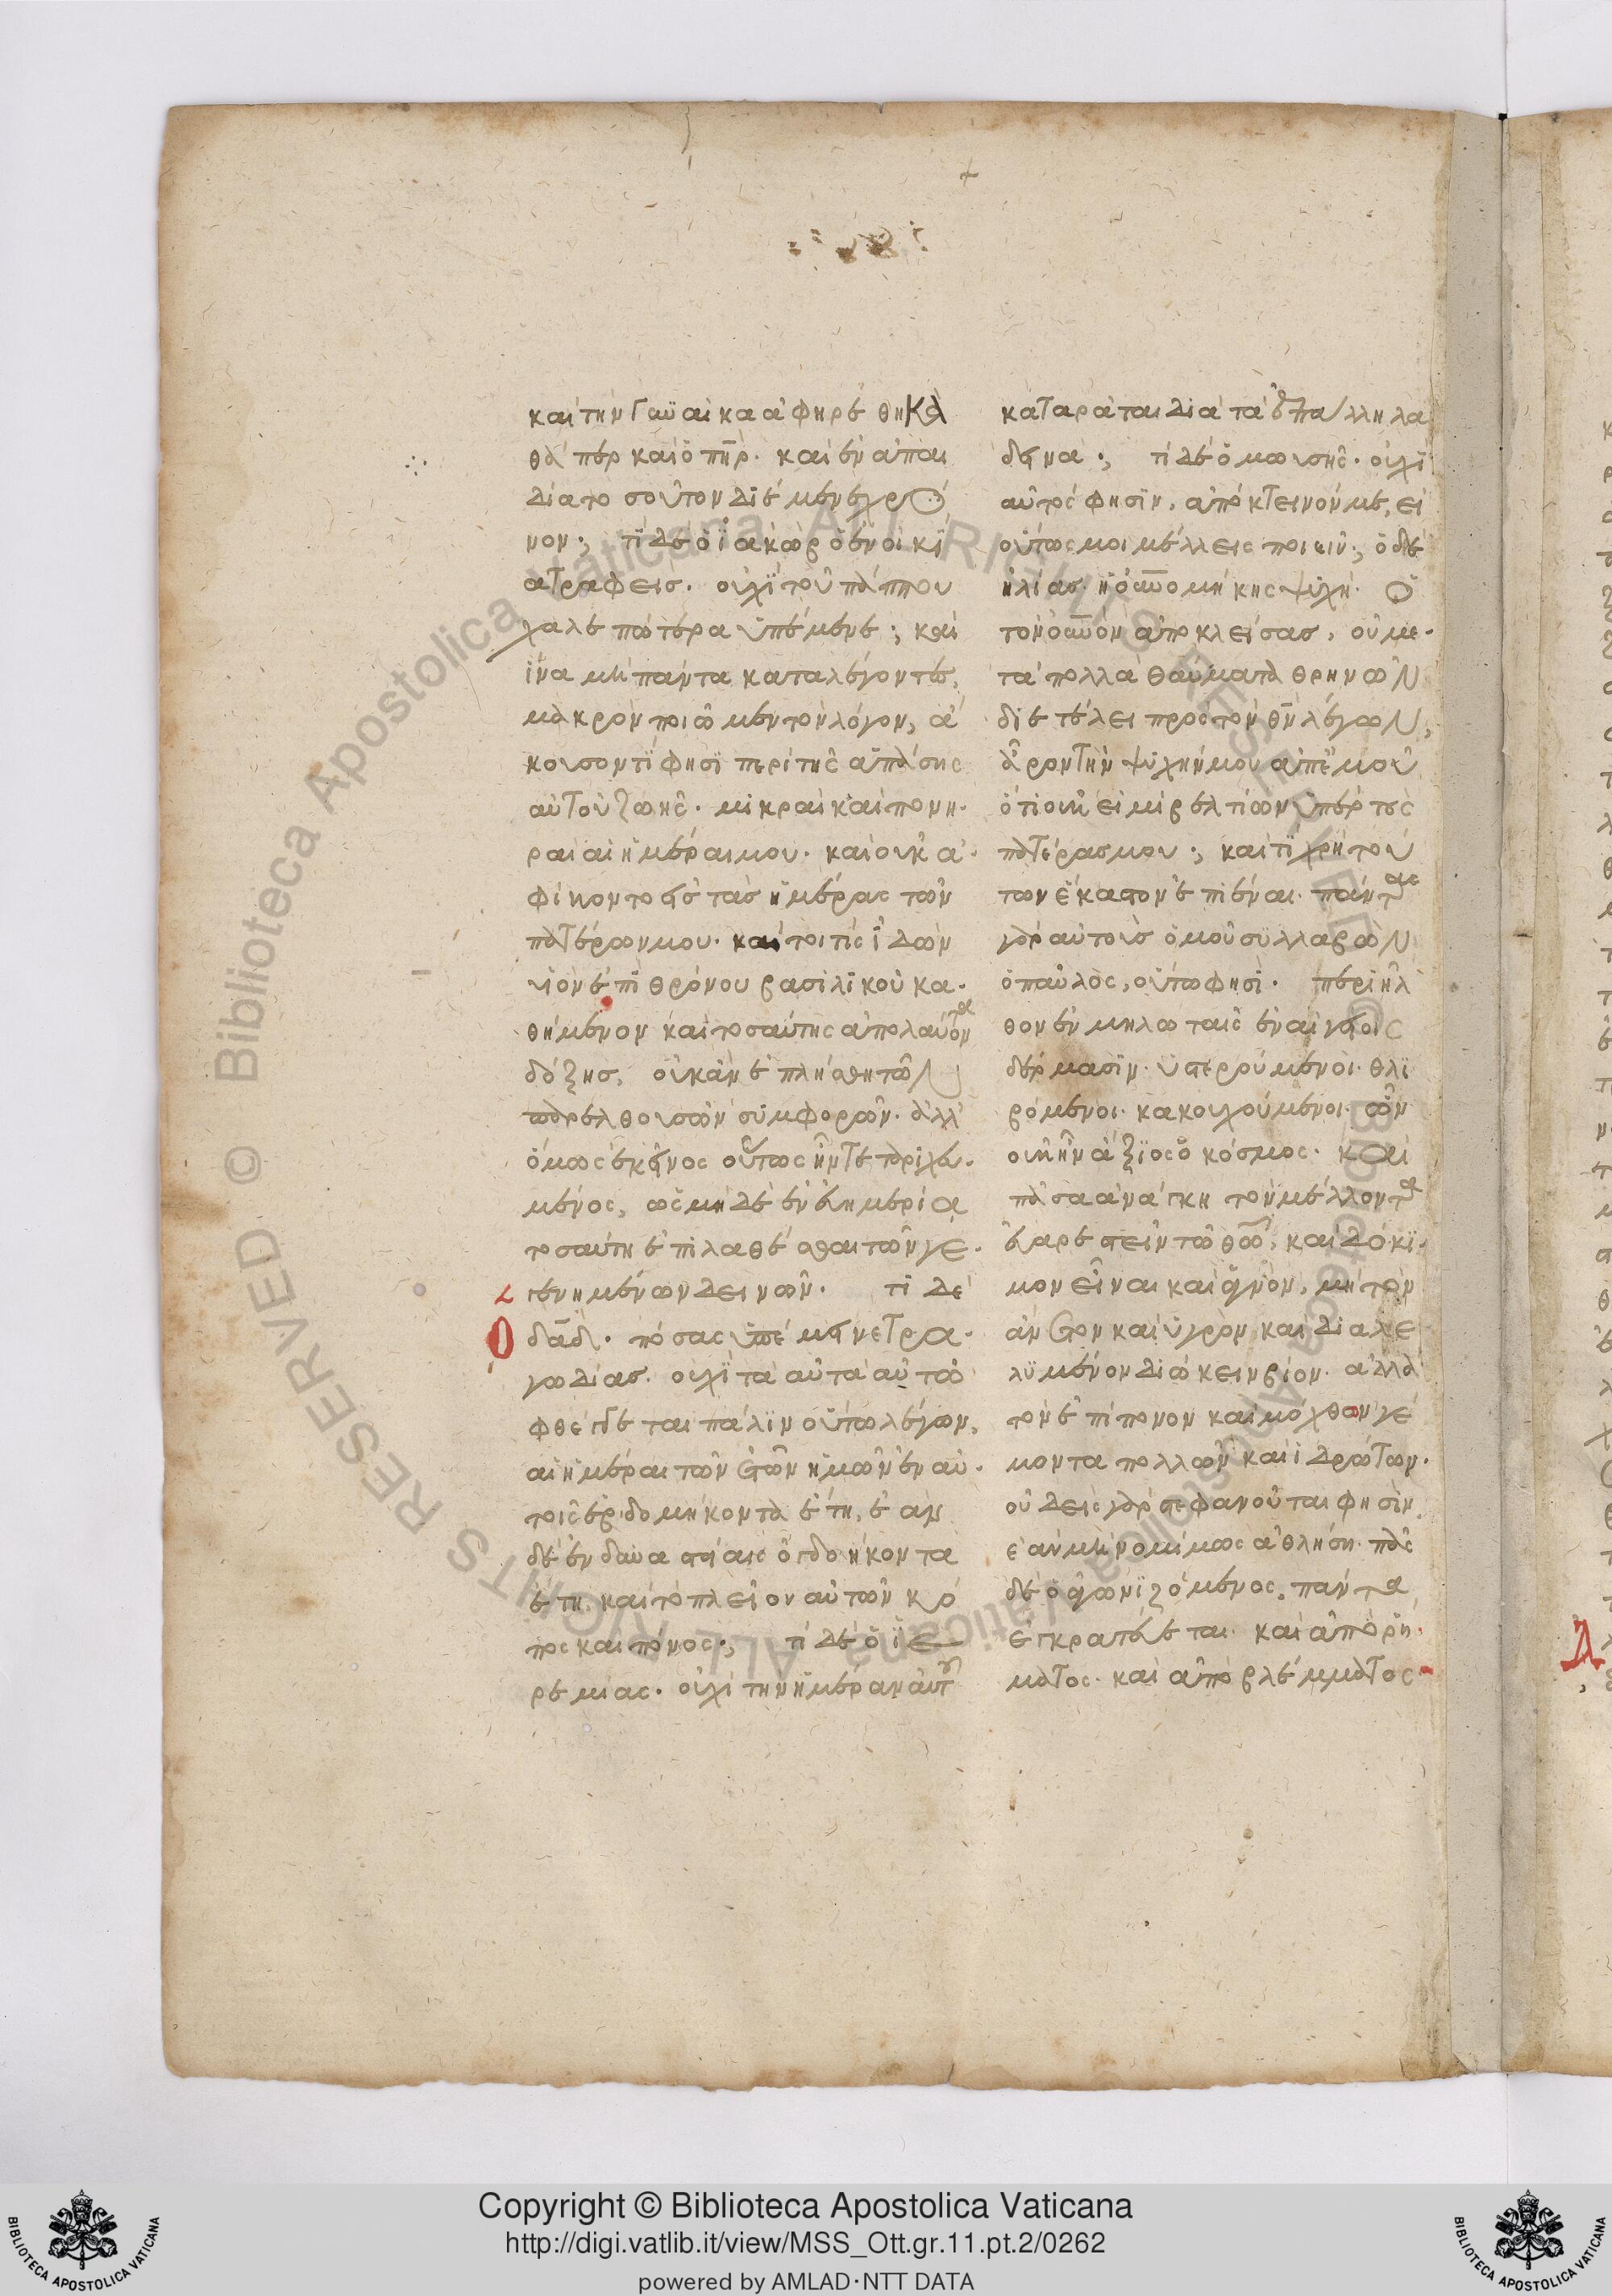 καὶ τὴν γυναῖκα ἀφηρέθη κα
θάπερ καὶ ὁ πηρ. καὶ ἐν ἅπαν
διὰ τοσοῦτον διέμεινε χρό
νον; τί δὲ ὁ ἰακὼβ ὁ ἐν οἰκί
α τραφείς. οὐχὶ τοῦ πάππου
χαλεπώτερα ὑπέμεινε; καὶ
ἵνα μὴ πάντα καταλέγοντες,
μακρὸν ποιῶμεν τὸν λόγον, ἄ
κουσον τί φησι περὶ τῆς ἁπάσης
αὐτοῦ ζωῆς. μικραὶ καὶ πονη
ραὶ αἱ ἡμέραι μου. καὶ οὐκ ἀ
φίκοντο εἰς τὰς ἡμέρας τῶν
πατέρων μου. καίτοι τίς ἰδὼν
υἱὸν ἐπὶ θρόνου βασιλικοῦ κα
θήμενον καὶ τοσαύτης ἀπολαύοντα
δόξης, οὐκ ἂν ἐπλήσθη τῶν
παρελθουσῶν συμφορῶν. ἀλλ'
ὅμως ἐκεῖνος οὕτως ἦν τεταριχευ
μένος, ὡς μηδὲ ἐν εὐημερία
τοσαύτη ἐπιλαθέσθαι τῶν γε
γενημένων δεινῶν. τί δὲ
ὁ δαδ. πόσας ὑπέμεινε τρα
γωδίας. οὐχὶ τὰ αὐτὰ αὐτῶ
φθέγγεται πάλιν οὕτω λέγων,
αἱ ἡμέραι τῶν ἐτῶν ἡμῶν ἐν αὐ
τοῖς ἑβδομήκοντα ἔτη, ἐὰν
δὲ ἐν δυναστείαις ὀγδοήκοντα
ἔτη. καὶ τὸ πλεῖον αὐτῶν κό
πος καὶ πόνος; τί δὲ ὁ ἱε
ρεμίας. οὐχὶ τὴν ἡμέραν αὐτοῦ
καταρᾶται διὰ τὰ ἐπάλληλα
δεινά; τί δὲ ὁ μωυσῆς. οὐχὶ
αὐτός φησιν, ἀπόκτεινόν με, εἰ
οὕτως μοι μέλλεις ποιεῖν; ὁ δὲ
ἠλίας. ἡ οὐνομήκης ψυχή. ὁ
τὸν οὐνὸν ἀποκλείσας, οὐ με
τὰ πολλὰ θαύματα θρηνῶν
διετέλει πρὸς τὸν θν λέγων,
ἆρον τὴν ψυχήν μου ἀπ' ἐμοῦ
ὅτι οὐκ εἰμὶ βελτίων ὑπὲρ τοὺς
πατέρας μου; καὶ τί χρὴ τού
των ἕκαστον ἐπιέναι. πάντας
γὰρ αὐτοὺς ὁμοῦ συλλαβὼν
ὁ παῦλος, οὕτω φησί. περιῆλ
θον ἐν μηλωταῖς ἐν αἰγείοις
δέρμασιν. ὑστερούμενοι. θλι
βόμενοι. κακουχούμενοι. ὧν
οὐκ ἦν ἄξιος ὁ κόσμος. καὶ
πᾶσα ἀνάγκη τὸν μέλλοντα
εὐαρεστεῖν τῶ θῶ, καὶ δόκι
μον εἶναι καὶ ἁγνόν, μὴ τὸν
ἄνετον καὶ ὑγρὸν καὶ διαλε
λυμένον διώκειν βίον. ἀλλὰ
τὸν ἐπίπονον καὶ μόχθων γέ
μοντα πολλῶν καὶ ἱδρώτων.
οὐδεὶς γὰρ στεφανοῦται φησίν,
ἐὰν μὴ νομίμως ἀθλήση. πᾶς
δὲ ὁ ἀγωνιζόμενος, πάντα
ἐγκρατεύεται. καὶ ἀπὸ ῥή
ματος. καὶ ἀπὸ βλέμματος
Copyright © Biblioteca Apostolica Vaticana
http://digi.vatlib.it/view/MSS_Ott.gr.11.pt.2/0262
powered by AMLAD·NTT DATA